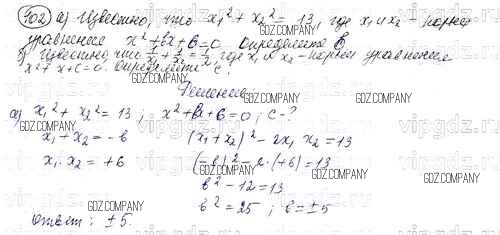 402 а) Известно, что x₁² + x₂² = 13, где x₁ и x₂ - корни
уравнения x² + bx + 6 = 0. Определите b
б) Известно, что 1/x₁ + 1/x₂ = 1/2, где x₁ и x₂ - корни уравнения
x² + x + c = 0. Определите c.
Решение
а) x₁² + x₂² = 13 ; x² + bx + 6 = 0 ; c - ?
x₁ + x₂ = -b (x₁ + x₂)² - 2x₁ x₂ = 13
x₁ · x₂ = +6 (-b)² - 2·(+6) = 13
b² - 12 = 13
b² = 25 ; b = ±5
Ответ: ±5.
GDZ.COMPANY
GDZ.COMPANY
GDZ.COMPANY
GDZ.COMPANY
GDZ.COMPANY
GDZ.COMPANY
GDZ.COMPANY
GDZ.COMPANY
GDZ.COMPANY